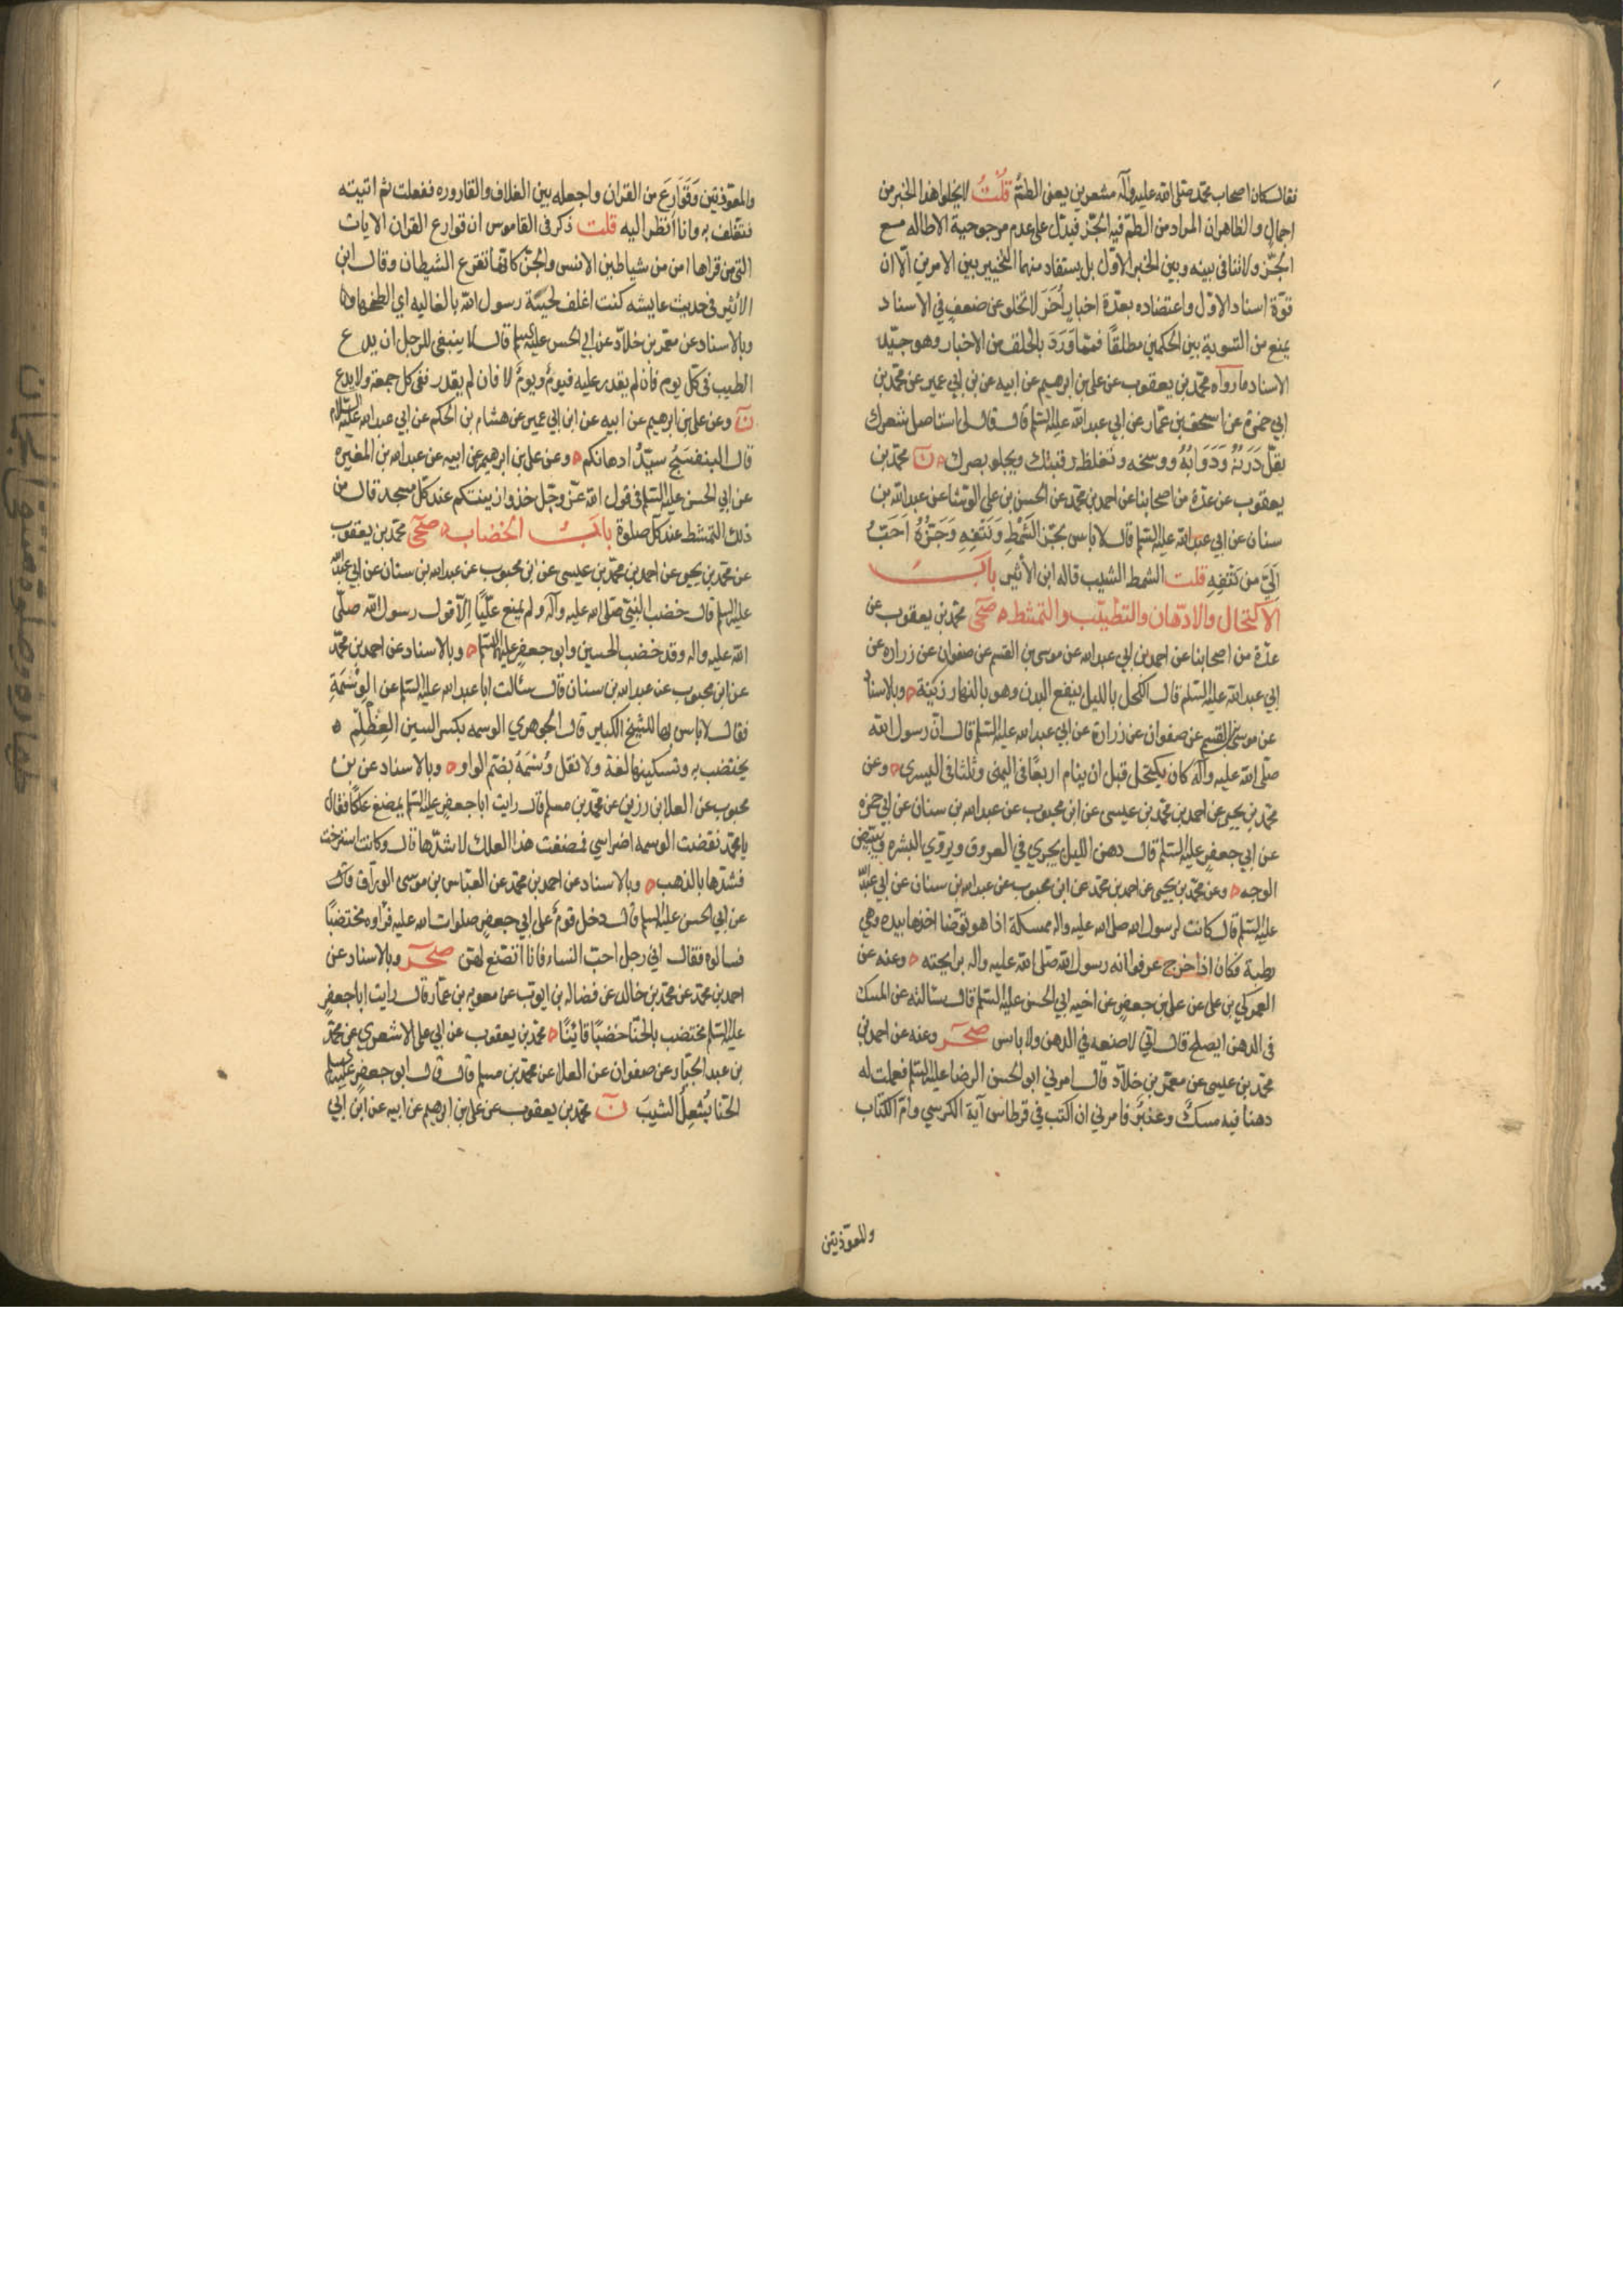 فقال كان اصحاب محمد صلى الله عليه وآله مشعرين يعنى الطمّ قُلْتُ لا يخلوا هذا الخبر من
اجمالٍ والظاهر ان المراد من الطمّ فيه الجزّ فيدلّ على عدم مرجوحية الاطاله مع
الجزّ ولا تنافى بينه وبين الخبر الاوّل بل يستفاد منهما التخيير بين الامرين الّا ان
قوّة اسناد الاوّل واعتضاده بعدّة اخبارٍ أُخَرَ لا تخلو عن ضعفٍ في الاسناد
يمنع من التسوية بين الحكمين مطلقًا فممّا وَرَدَ بالحلق من الاخبار وهو جيّد
الاسناد ما رواه محمّد بن يعقوب عن على بن ابرهيم عن ابيه عن بن ابي عمير عن محمّد بن
ابي حمزة عن اسحق بن عمّار عن ابي عبد الله عليه السلم قال قال لى استاصل شعرك
يقلّ دَرَنُهُ وَدَوَابُّهُ ووسخه وتغلظ رقبتك ويجلو بصرك ن محمّد بن
يعقوب عن عدّة من اصحابنا عن احمد بن محمّد عن الحسن بن على الوشّا عن عبد الله بن
سنان عن ابي عبد الله عليه السلم قال لا باس بجَزّ الشَّمْطِ وَنَتْفِهِ وَجَزُّهُ اَحَبُّ
اِلَيَّ من نَتْفِهِ قلت الشمط الشيب قاله ابن الأثير بابُ
الاكتحال والادّهان والتطيّب والتمشّط صحى محمّد بن يعقوب عن
عدّة من اصحابنا عن احمد بن ابي عبد الله عن موسى بن القسم عن صفوان عن زراره عن
ابي عبد الله عليه السلم قال الكحل بالليل ينفع البدن وهو بالنهار زينة وبالاسناد
عن موسى بن القسم عن صفوان عن زرارة عن ابي عبد الله عليه السلم قال انّ رسول الله
صلّى الله عليه وآله كان يكتحل قبل ان ينام اربعًا في اليمنى وثلثا في اليسرى وعن
محمّد بن يحيى عن احمد بن محمّد بن عيسى عن ابن محبوب عن عبد الله بن سنان عن ابي حمزه
عن ابي جعفرٍ عليه السلم قال دهن الليل يجري في العروق ويروي البشره ويبيّض
الوجه وعن محمّد بن يحيى عن احمد بن محمّد عن ابن محبوب عن عبد الله بن سنان عن ابي عبد الله
عليه السلم قال كانت لرسول الله صلى الله عليه واله ممسكة اذا هو توضّا اخذها بيده وهي
رطبة فكان اذا خرج عرفوا انه رسول الله صلى الله عليه واله برايحته وعنه عن
العمركي بن على عن على بن جعفرٍ عن اخيه ابي الحسن عليه السلم قال سالته عن المسك
فى الدهن ايصلح قال انّي لاصنعه في الدهن ولا باس صحر وعنه عن احمد بن
محمّد بن عيسى عن معمّر بن خلّاد قال امرني ابو الحسن الرضا عليه السلم فعملت له
دهنا فيه مسكٌ وعنبرٌ فامرني ان اكتب في قرطاس آية الكرسي وامّ الكتاب
وللمعوّذتين
والمعوّذتين وَقَوَارِعَ من القران واجعله بين الغلاف والقاروره ففعلت ثم اتيته
فتغلف به وانا انظر اليه قلت ذكر فى القاموس ان قوارع القران الايات
التى من قراها امن من شياطين الانس والجنّ كانّها تقرع الشيطان وقال ابن
الأثير في حديث عايشه كنت اغلف لحية رسول الله بالغاليه اي الطخها بها
وبالاسناد عن معمّر بن خلّاد عن ابي الحسن عليه السلم قال لا ينبغى للرجل ان يدع
الطيب فى كلّ يوم فان لم يقدر عليه فيومٌ ويومٌ لا فان لم يقدر ففى كل جمعة ولا يدع
ن وعن على بن ابرهيم عن ابيه عن ابن ابي عمير عن هشام بن الحكم عن ابي عبد الله عليه السلام
قال البنفسَجُ سيّدُ ادهانكم وعن على بن ابرهيم عن ابيه عن عبد الله بن المغيره
عن ابي الحسن عليه السلم فى قول الله عزّ وجلّ خذوا زينتكم عند كلّ مسجد قال من
ذلك التمشط عند كلّ صلوة بابُ الخضاب صحى محمّد بن يعقوب
عن محمّد بن يحيى عن احمد بن محمّد بن عيسى عن ابن محبوب عن عبد الله بن سنان عن ابي عبد الله
عليه السلم قال خضب النبيّ صلّى الله عليه وآله ولم يمنع عليًّا اِلّا قول رسول الله صلّى
الله عليه واله وقد خضب الحسين وابو جعفرٍ عليهما السلم وبالاسناد عن احمد بن محمّد
عن ابن محبوب عن عبد الله بن سنان قال سئالت ابا عبد الله عليه السلم عن الوِسْمَةِ
فقال لا باس بها للشيخ الكبير قال الجوهري الوسمه بكسر السين العِظْلِم
يختضب به وتسكينها لغة ولا تقل وُسْمَةٌ بضمّ الواو وبالاسناد عن بن
محبوب عن العلا بن رزين عن محمّد بن مسلم قال رايت ابا جعفرٍ عليه السلم يمضغ علكًا فقال
يا محمّد نقضت الوسمه اضراسي فمضغت هذا العلك لاشدّها قال وكانت استرخت
فشدّها بالذهب وبالاسناد عن احمد بن محمّد عن العبّاس بن موسى الورّاق
عن ابي الحسن عليه السلم قال دخل قومٌ على ابي جعفرٍ صلوات الله عليه فرأوه مختضبًا
فسالوه فقال اني رجل احبّ النساء فانا اتصنّع لهنّ صحر وبالاسناد عن
احمد بن محمّد عن محمّد بن خالد عن فضاله بن ايوب عن معويه بن عمّار قال رايت ابا جعفرٍ
عليه السلم مختضب بالحنّا خضبًا قانيًا محمّد بن يعقوب عن ابي على الاشعري عن محمّد
بن عبد الجبّار عن صفوان عن العلا عن محمّد بن مسلم قال قال ابو جعفر عليه السلم
الحنّا يُشعِلُ الشيبَ ن محمّد بن يعقوب عن على بن ابرهيم عن ابيه عن ابن ابي